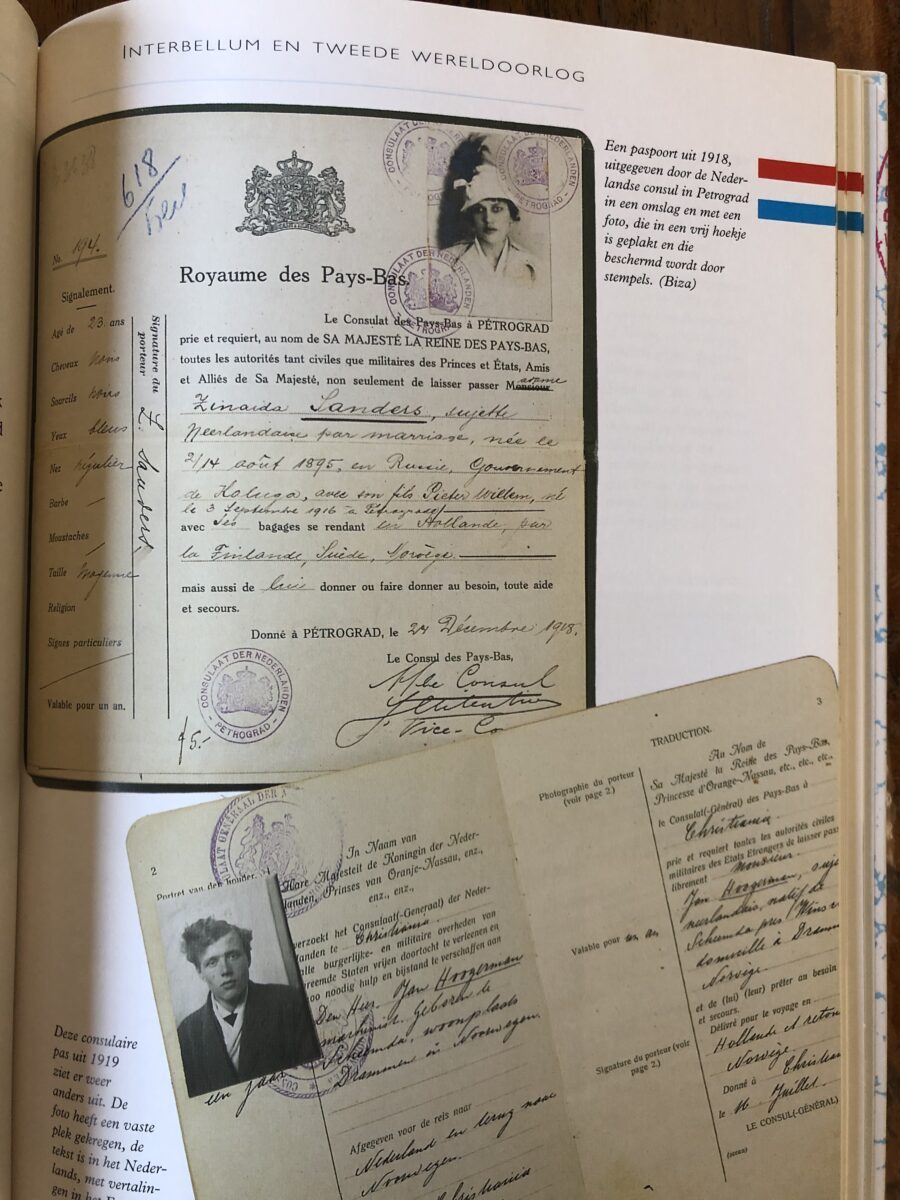 INTERBELLUM EN TWEEDE WERELDOORLOG
Een paspoort uit 1918,
uitgegeven door de Neder-
landse consul in Petrograd
in een omslag en met een
foto, die in een vrij hoekje
is geplakt en die
beschermd wordt door
stempels. (Biza)
618
No. 194.
Signalement.
Agé de 23 ans
Cheveux noirs
Sourcils noirs
Yeux bleus
Nez régulier
Barbe —
Moustaches —
Taille moyenne
Religion
Signes particuliers
Valable pour un an.
Signature du porteur
Z. Sanders.
CONSULAAT DER NEDERLANDEN
- PETROGRAD -
Royaume des Pays-Bas.
Le Consulat des Pays-Bas à PÉTROGRAD
prie et requiert, au nom de SA MAJESTÉ LA REINE DES PAYS-BAS,
toutes les autorités tant civiles que militaires des Princes et États, Amis
et Alliés de Sa Majesté, non seulement de laisser passer Madame
Zinaida Sanders, sujette
Neerlandaise par marriage, née le
2/14 août 1895, en Russie, Gouvernement
de Kaluga, avec son fils Pieter Willem, né
le 3 Septembre 1916 à Pétrograd
avec ses bagages se rendant en Hollande, par
la Finlande, Suède, Norvège
mais aussi de lui donner ou faire donner au besoin, toute aide
et secours.
Donné à PÉTROGRAD, le 24 Décembre 1918.
Le Consul des Pays-Bas,
Consul
Vice-Co
CONSULAAT DER NEDERLANDEN
- PETROGRAD -
5.-
2
Portret van den houder.
In Naam van
Hare Majesteit de Koningin der Neder-
landen, Prinses van Oranje-Nassau, enz.,
enz., enz.,
verzoekt het Consulaat(-Generaal) der Neder-
landen te Christiania
alle burgerlijke- en militaire overheden van
vreemde Staten vrijen doortocht te verleenen en
zoo noodig hulp en bijstand te verschaffen aan
Den Heer Jan Hoogerman
machinist, geboren te
Scheemda, woonplaats
Drammen in Noorwegen.
een jaar
Afgegeven voor de reis naar
Nederland en terug naar
Noorwegen.
Christiania
3
TRADUCTION.
Photographie du porteur
(voir page 2.)
Au Nom de
Sa Majesté la Reine des Pays-Bas,
Princesse d'Orange-Nassau, etc., etc., etc.,
le Consulat(-Général) des Pays-Bas à
Christiania
prie et requiert toutes les autorités civiles
militaires des Etats Etrangers de laisser pass
librement Monsieur
Jan Hoogerman, suje
neerlandais, natif de
Scheemda près
domicilé à Dramm
Norvège.
Valable pour un an
et de (lui) (leur) prêter au besoin
et secours.
Délivré pour le voyage en
Hollande et retou
Norvège.
Signature du porteur (voir
page 2.)
Donné à Christiani
le 16 Juillet
LE CONSUL(-GÉNÉRAL)
(sceau)
Deze consulaire
pas uit 1919
ziet er weer
anders uit. De
foto heeft een vaste
plek gekregen, de
tekst is in het Neder-
lands, met vertalin-
gen in het